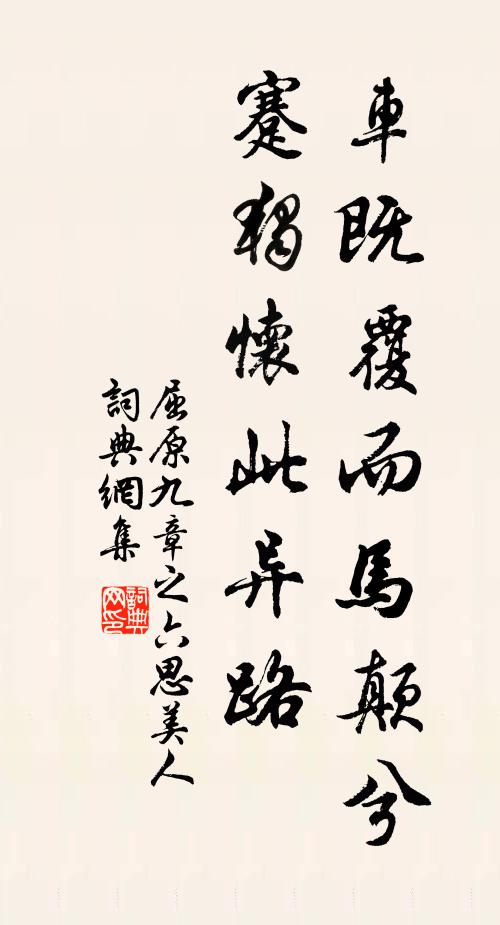 車既覆而馬顛兮
蹇獨懷此异路
屈原九章之六思美人
詞典網集
詞典网印